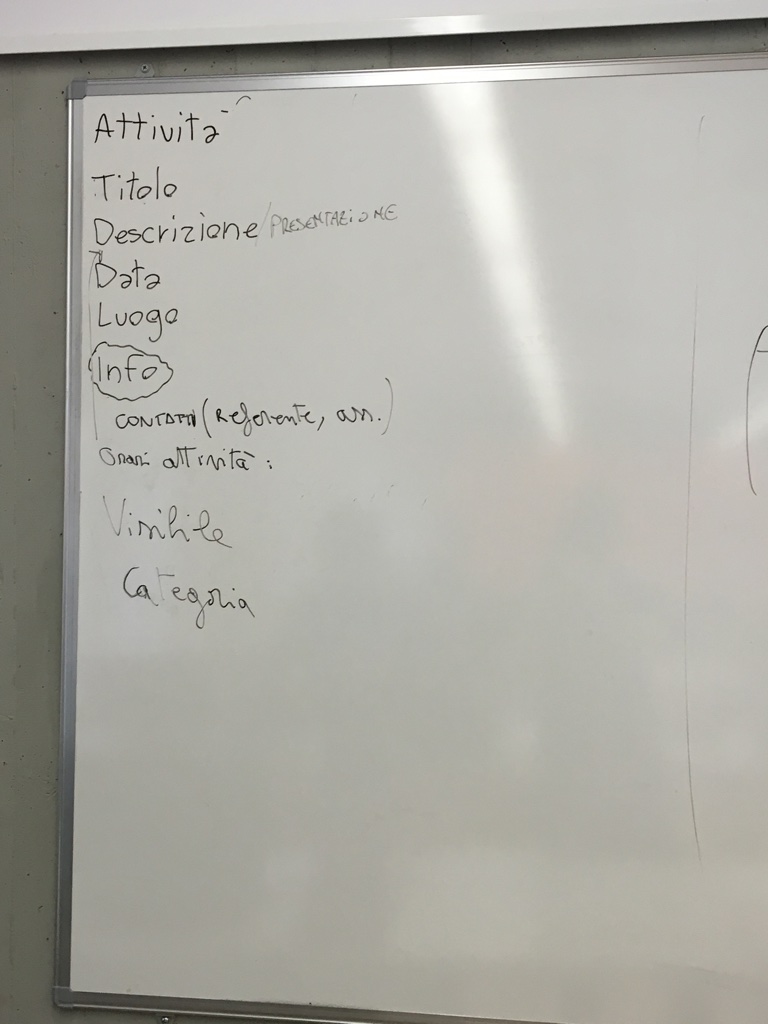 Attività
Titolo
Descrizione/PRESENTAZIONE
Data
Luogo
Info
CONTATTI (Referente, ass.)
Orari attività:
Visibile
Categoria